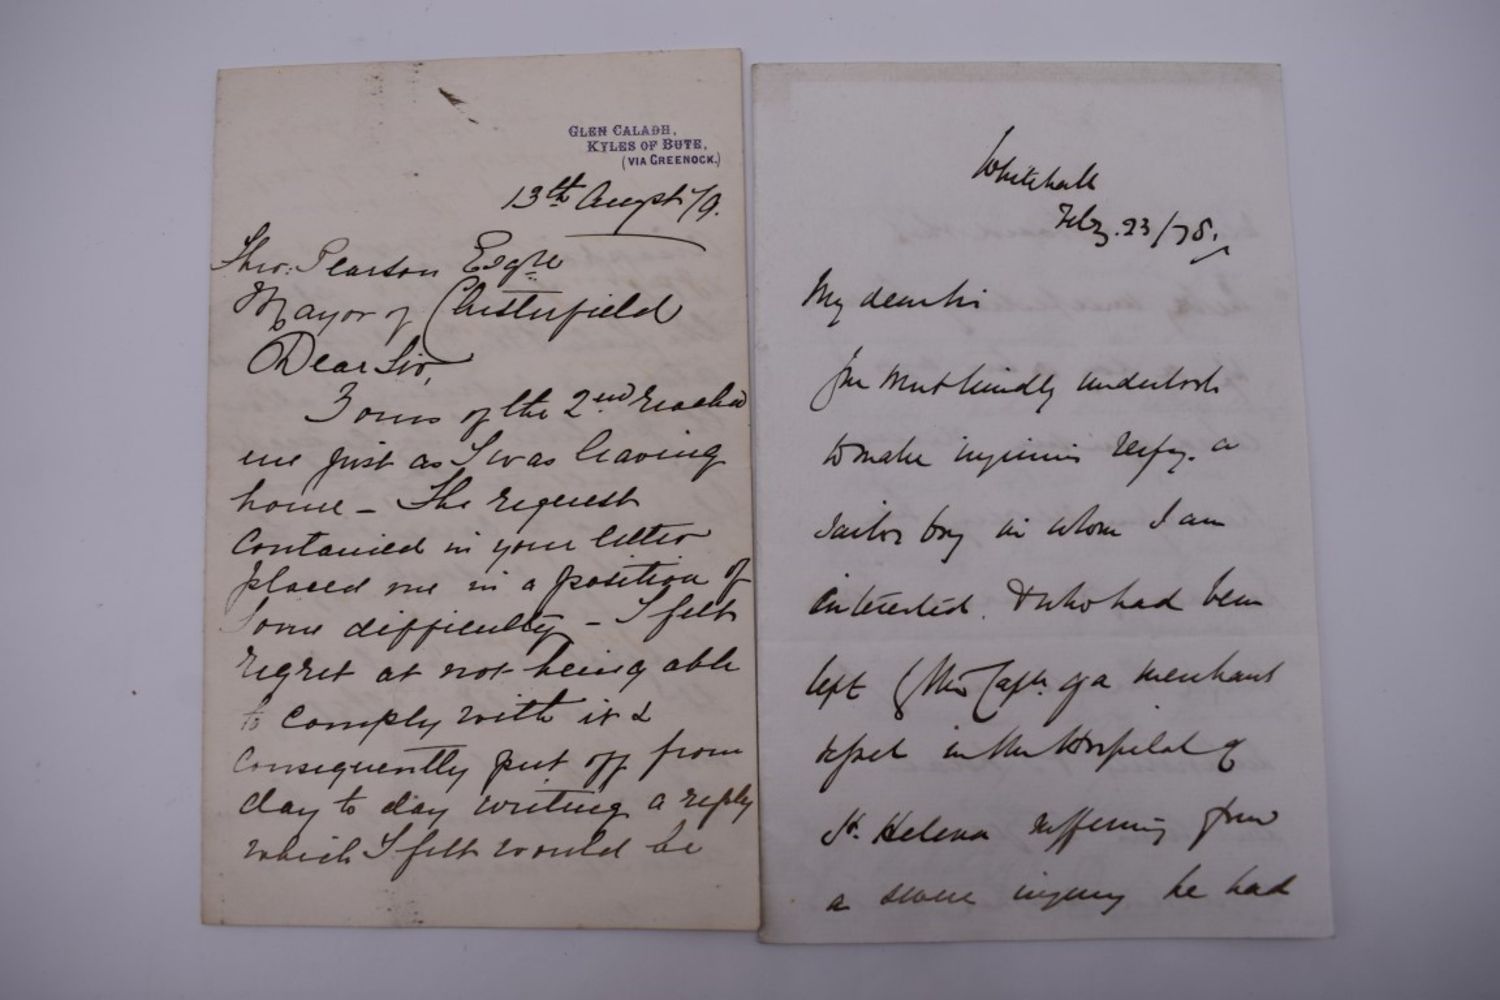 GLEN CALADH,
KYLES OF BUTE,
(VIA GREENOCK.)
13th Augst /79.
Thos: Pearson Esqre
Mayor of Chesterfield
Dear Sir,
Yours of the 2nd reached
me just as I was leaving
home – The request
contained in your letter
placed me in a position of
some difficulty – I felt
regret at not being able
to comply with it &
consequently put off from
day to day writing a reply
which I felt would be
Whitehall
Feby. 23/78.
My dear Sir
You most kindly undertook
to make inquiries respg. a
sailor boy in whom I am
interested. & who had been
left by the Captn. of a merchant
vessel in the Hospital of
St. Helena suffering from
a severe injury he had